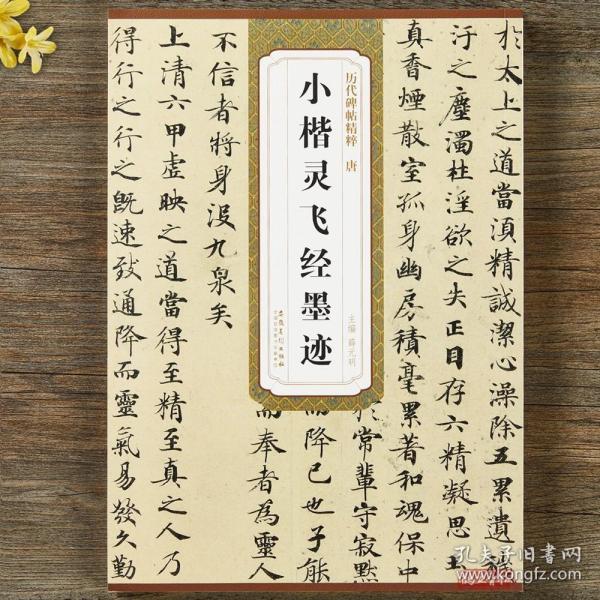 於太上之道當湏精誠潔心澡除五累遺
汙之塵濁杜淫欲之失正目存六精凝思玉
真香煙散室孤身幽房積毫累著和魂保中
於常輩守寂默
而降已也子能
而奉者為靈人
不信者將身沒九泉矣
上清六甲虛映之道當得至精至真之人乃
得行之行之既速致通降而靈氣易發久勤
历代碑帖精粹 唐
小楷灵飞经墨迹
主编 薛元明
安徽美术出版社
孔夫子旧书网
www.kongfz.com